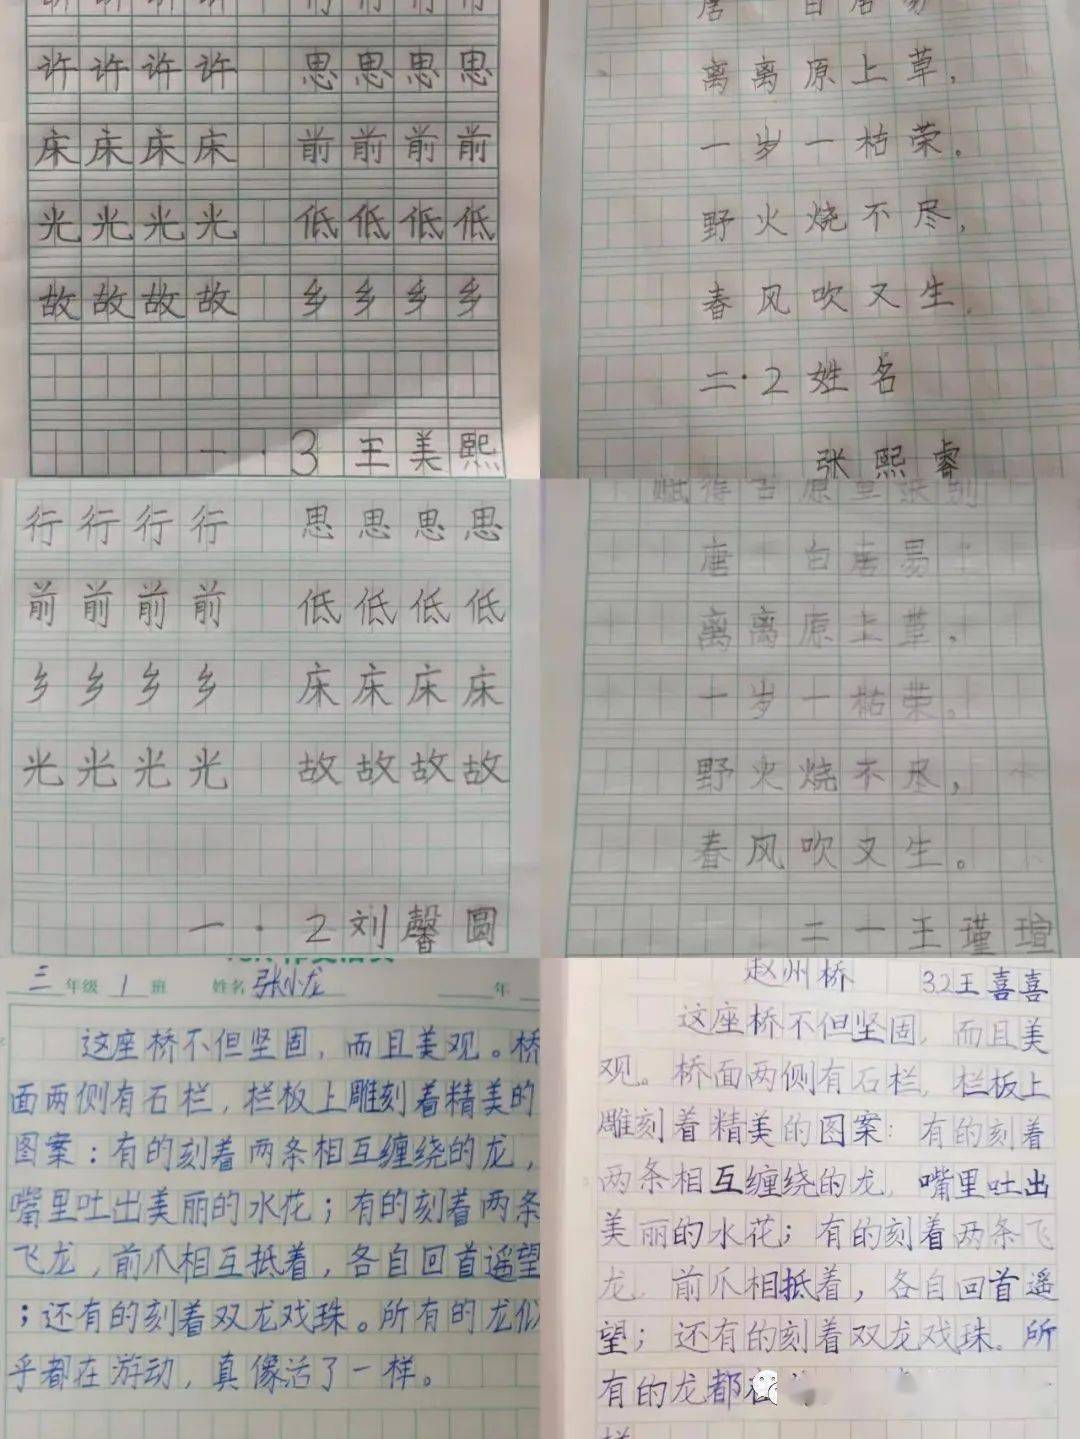 许许许许 思思思思
床床床床 前前前前
光光光光 低低低低
故故故故 乡乡乡乡
一·3 王美熙
唐 白居易
离离原上草,
一岁一枯荣。
野火烧不尽,
春风吹又生.
二·2姓名
张熙睿
行行行行 思思思思
前前前前 低低低低
乡乡乡乡 床床床床
光光光光 故故故故
一·2刘馨圆
赋得古原草送别
唐 白居易
离离原上草,
一岁一枯荣。
野火烧不尽,
春风吹又生。
二一王瑾瑄
三年级 1 班 姓名 张小龙 年
这座桥不但坚固,而且美观。桥
面两侧有石栏,栏板上雕刻着精美的
图案:有的刻着两条相互缠绕的龙,
嘴里吐出美丽的水花;有的刻着两条
飞龙,前爪相互抵着,各自回首遥望
;还有的刻着双龙戏珠。所有的龙似
乎都在游动,真像活了一样。
赵州桥 3.2王喜喜
这座桥不但坚固,而且美
观。桥面两侧有石栏,栏板上
雕刻着精美的图案:有的刻着
两条相互缠绕的龙,嘴里吐出
美丽的水花;有的刻着两条飞
龙,前爪相抵着,各自回首遥
望;还有的刻着双龙戏珠.所
有的龙都在